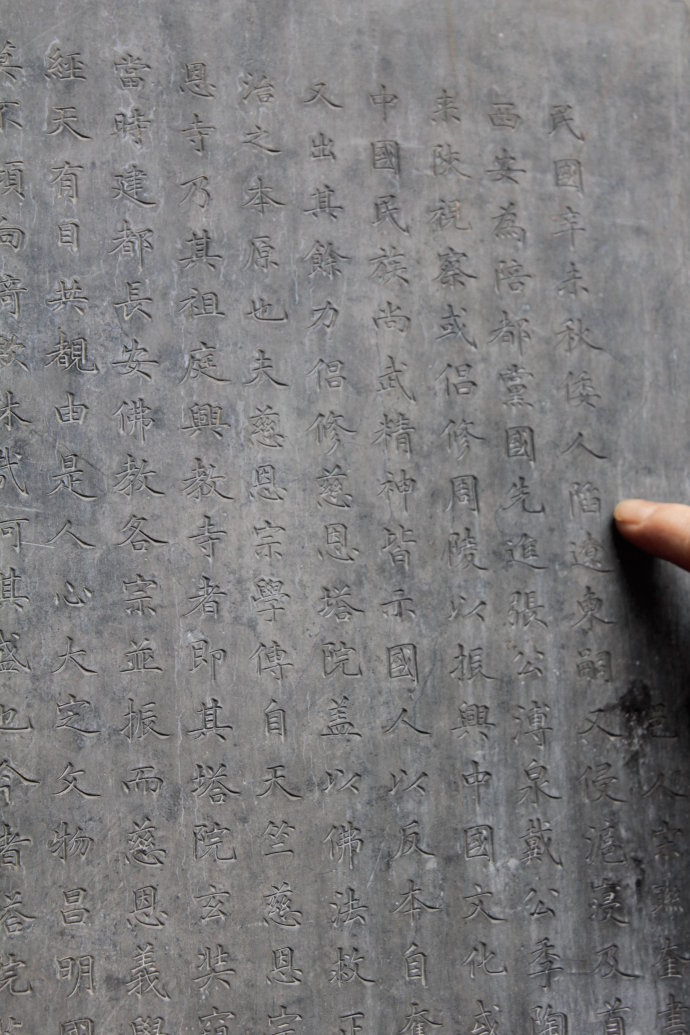 邑人宋聯奎書
民國辛未秋倭人陷遼東嗣又侵滬寖及首
西安為陪都黨國先進張公溥泉戴公季陶
來陝視察或倡修周陵以振興中國文化或
中國民族尚武精神皆示國人以反本自奮
又出其餘力倡修慈恩塔院蓋以佛法救正
治之本原也夫慈恩宗學傳自天竺慈恩宗
恩寺乃其祖庭興教寺者即其塔院玄奘窺
當時建都長安佛教各宗並振而慈恩義學
經天有目共覩由是人心大定文物昌明國
莫不傾向猗歟休哉何其盛也今者塔院